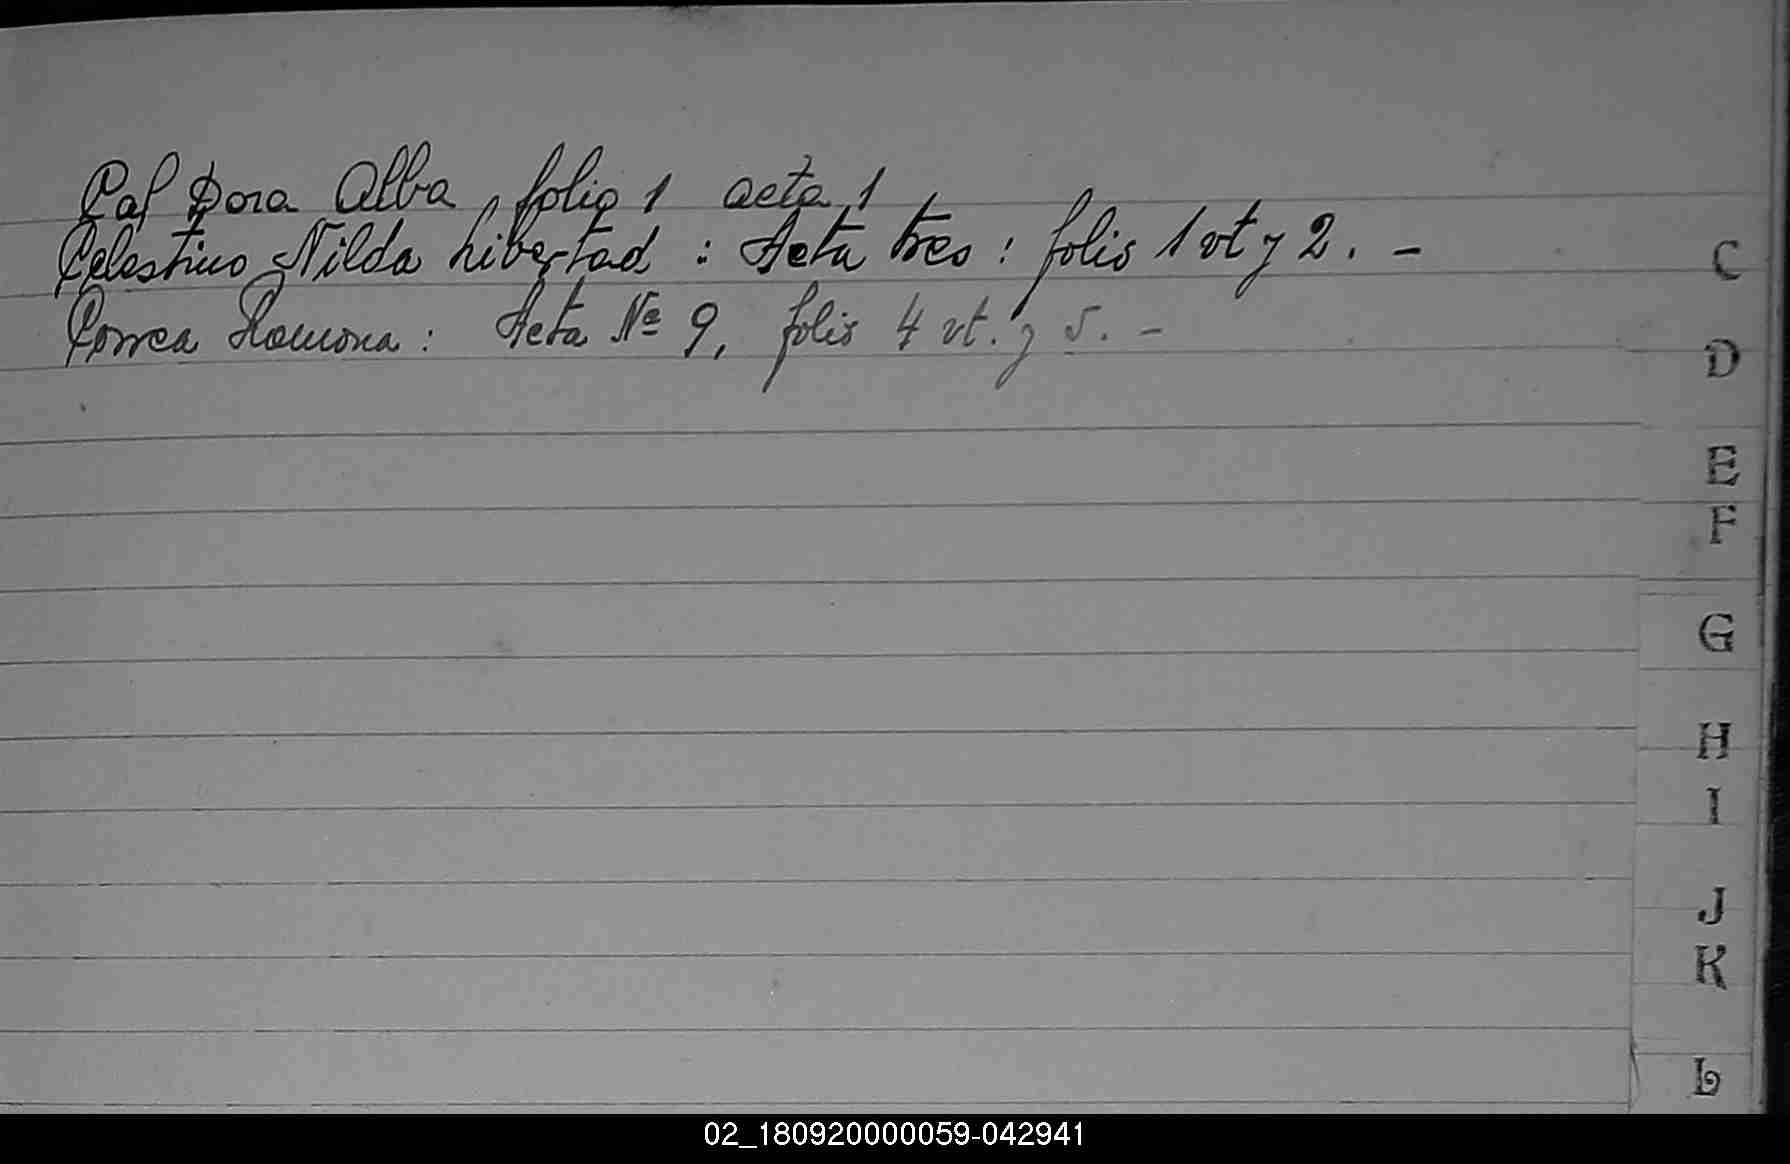 Cal Dora Alba folio 1 acta 1
Celestino Nilda Libertad : Acta tres : folio 1 vt y 2. -
Correa Ramona : Acta Nº 9, folio 4 vt. y 5. -
C
D
E
F
G
H
I
J
K
L
02_180920000059-042941